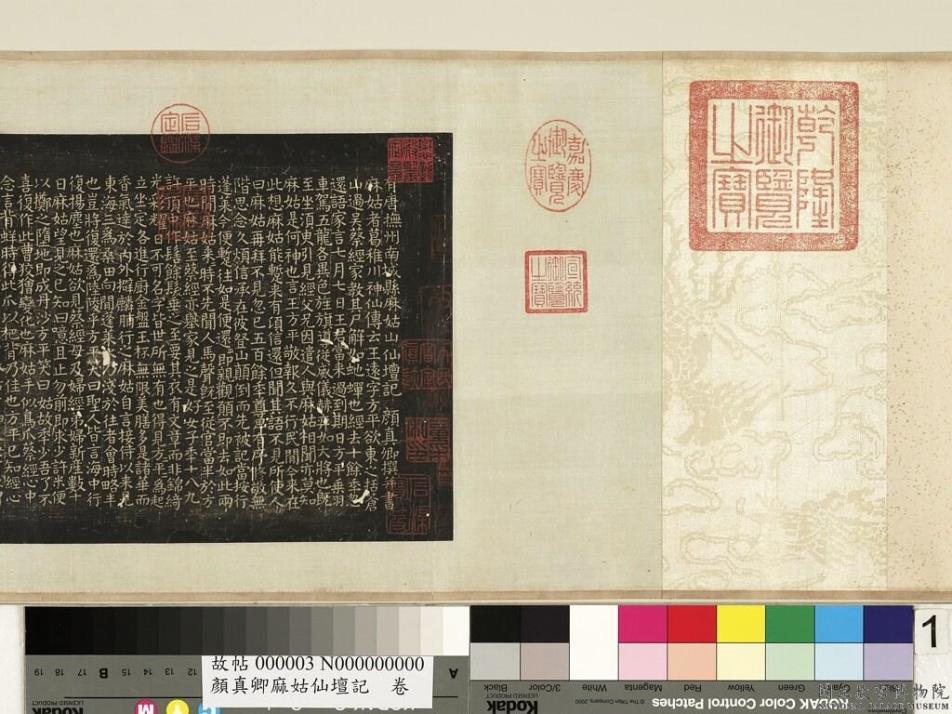 乾隆御覽之寶
嘉慶御覽之寶
宣統御覽之寶
有唐撫州南城縣麻姑山仙壇記　顏真卿撰并書
麻姑者葛稚川神仙傳云王遠字方平欲東之括蒼
山過吳蔡經家教其尸解如蛇蟬也經去十餘年忽
還語家言七月七日王君當來過到期日方平乘羽
車駕五龍各異色旌旗導從威儀赫奕如大將也既
至坐須臾引見經父兄因遣人與麻姑相聞亦莫知
麻姑是何神也言王方平敬報久不行民間今來在
此想麻姑能暫來有頃信還但聞其語不見所使人
曰麻姑再拜不見忽已五百餘年尊卑有序修敬無
階思念久煩信承在彼登山顛倒而先被記當按行
蓬萊今便暫往如是便還還即親觀願不即去如此兩
時間麻姑來來時不先聞人馬聲既至從官當半於方
平也麻姑至蔡經亦舉家見之是好女子年十八九
許頂中作髻餘髮垂之至要其衣有文章而非錦綺
光彩耀日不可名字皆世所無有也得見方平為起
立坐定各進行廚金盤玉杯無限美膳多是諸華而
香氣達於內外擗麟脯行之麻姑自言接待以來見
東海三為桑田向間蓬萊水乃淺於往者會時略半
也豈將復還為陸陵乎方平笑曰聖人皆言海中行
復揚塵也麻姑欲見蔡經母及婦經弟婦新產數十
日麻姑望見之已知曰噫且止勿前即求少許米便
以擲之墮地即成丹沙方平笑曰姑故年少吾了不
喜復作此曹狡獪變化也麻姑手似鳥爪蔡經心中
念言背蛘時得此爪以杷背乃佳也方平已知經心
1
故帖 000003 N000000000
顏真卿麻姑仙壇記　卷
19 18 17 16 15 14 13 12
B
A
M
Y
C
Kodak
Black
3/Color
White
Magenta
Red
Yellow
Green
Cyan
Blue
KODAK Color Control Patches
國立故宮博物院
NATIONAL PALACE MUSEUM